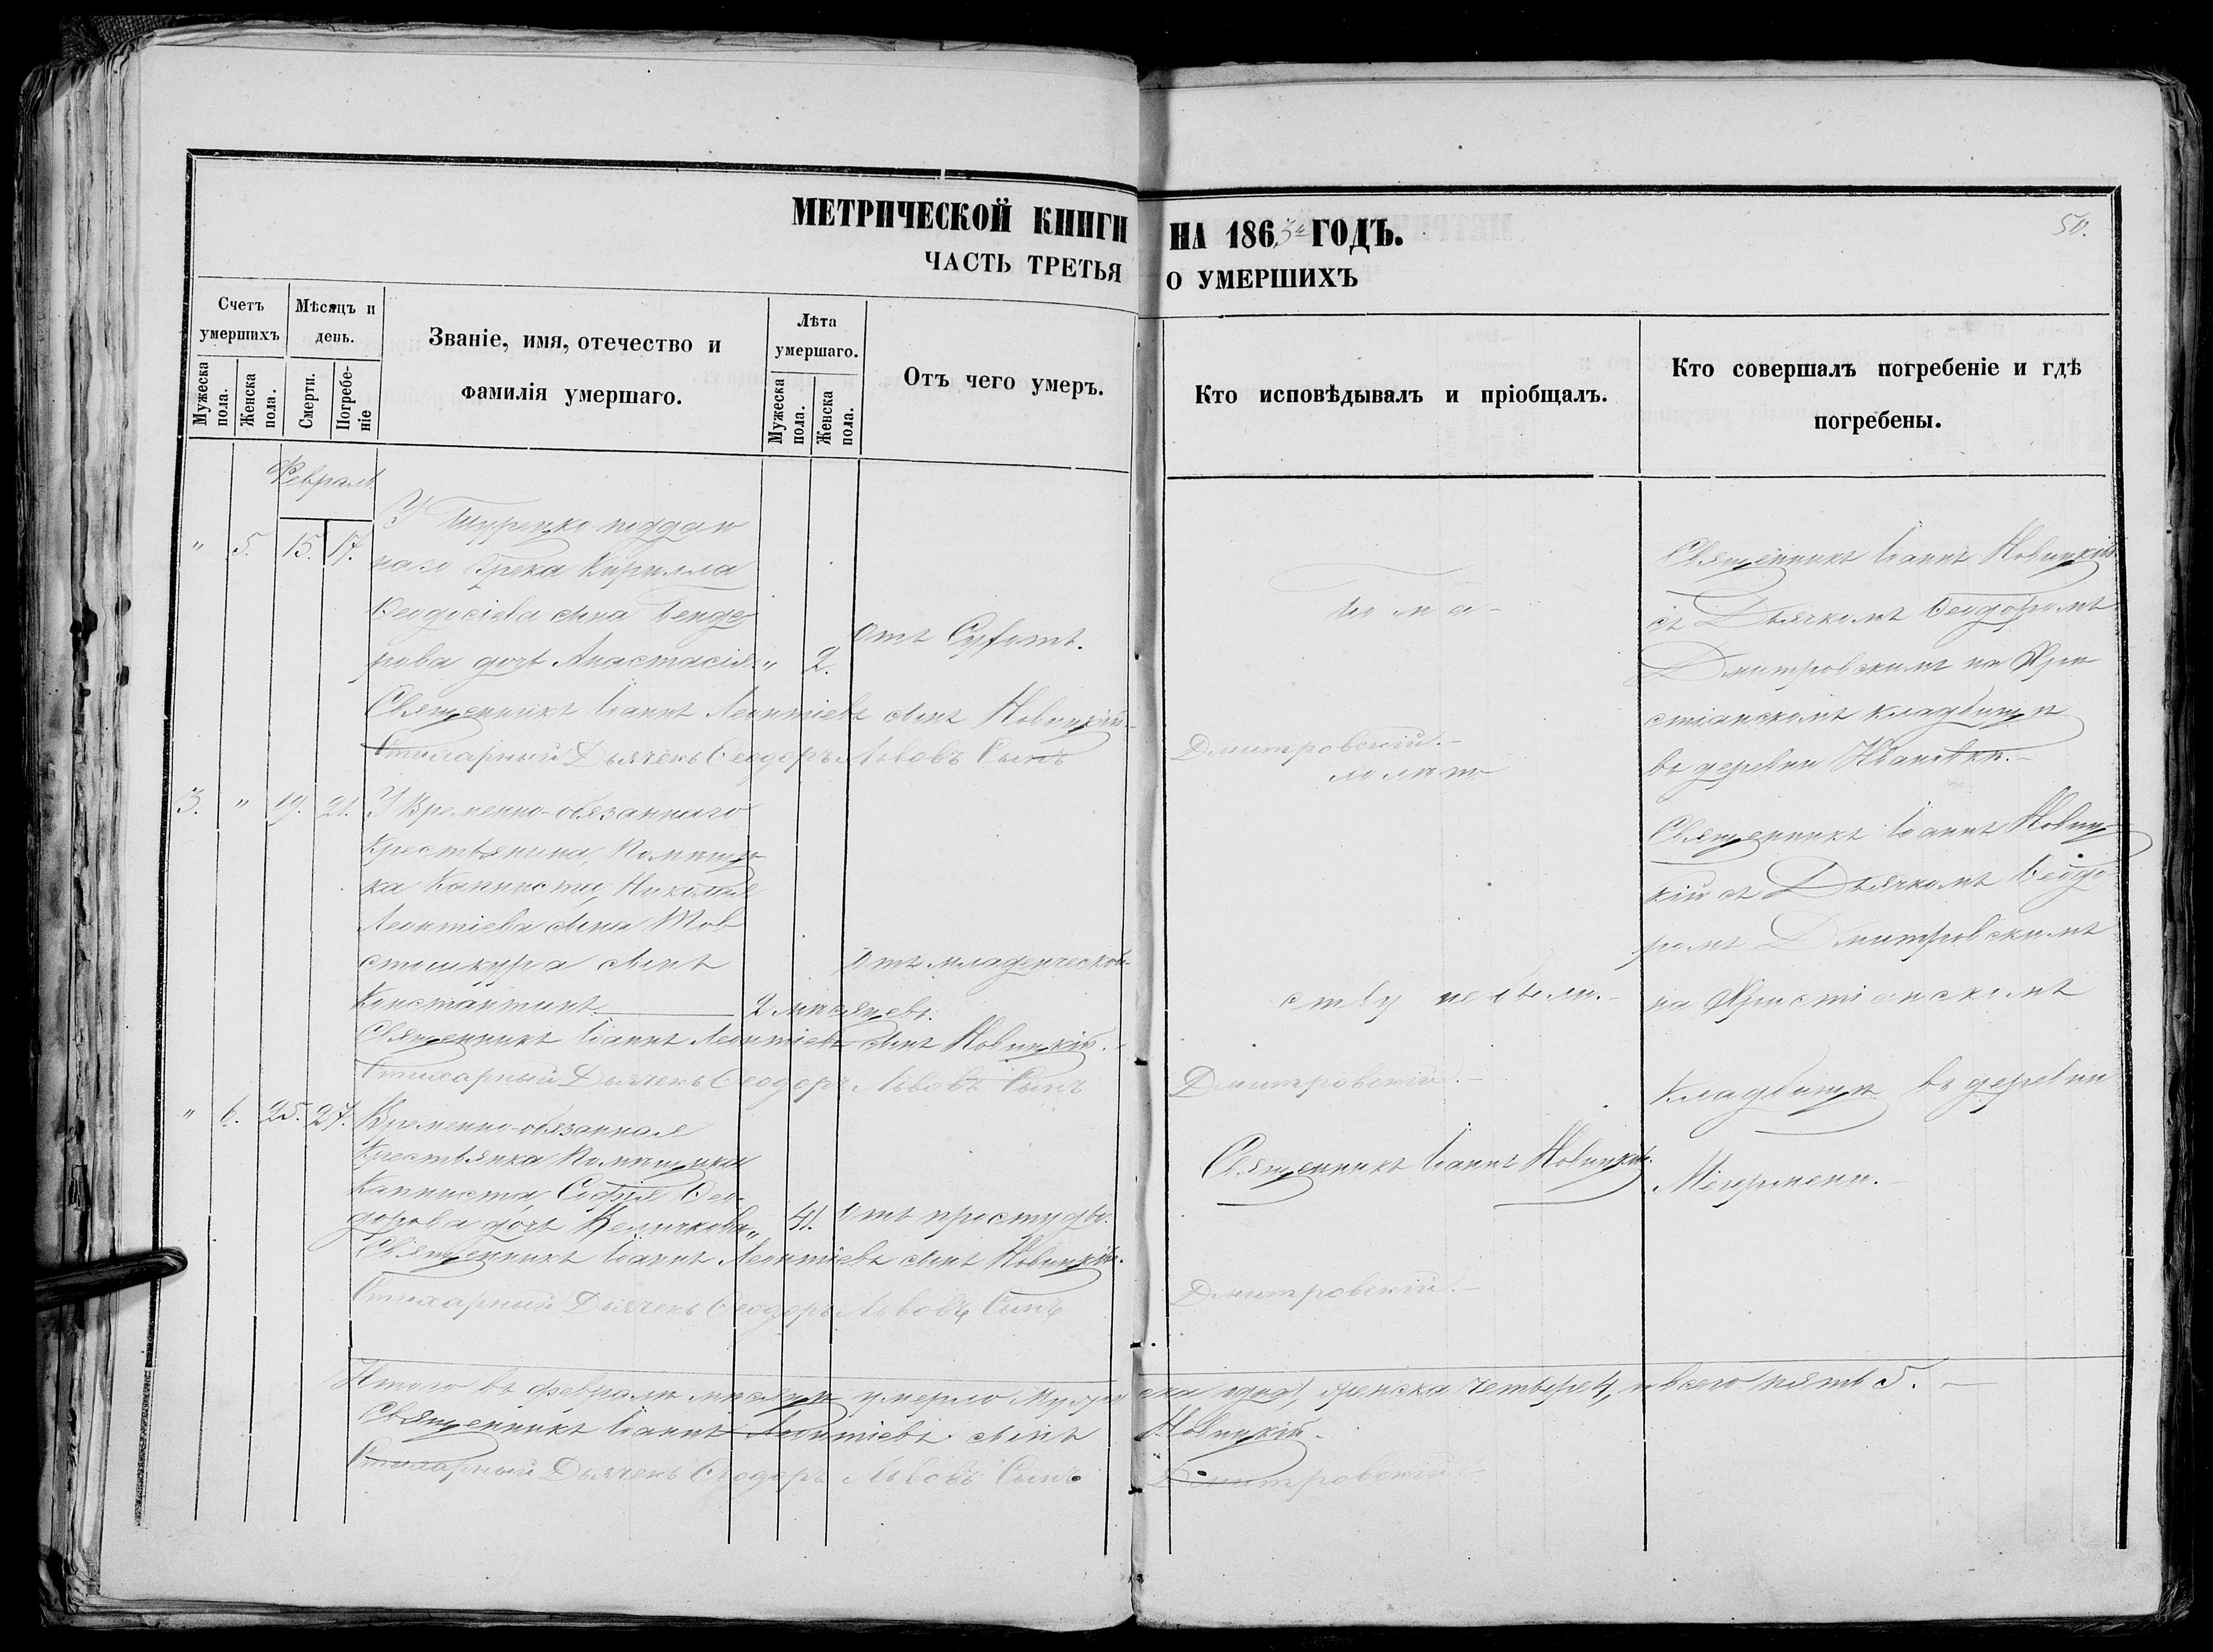 МЕТРИЧЕСКОЙ КНИГИ НА 1863й ГОДЪ.
50.
ЧАСТЬ ТРЕТЬЯ О УМЕРШИХЪ
Счетъ умершихъ
Мужеска пола.
Женска пола.
Мѣсяцъ и день.
Смерти.
Погребеніе
Званіе, имя, отечество и фамилія умершаго.
Лѣта умершаго.
Мужеска пола.
Женска пола.
Отъ чего умеръ.
Кто исповѣдывалъ и пріобщалъ.
Кто совершалъ погребеніе и гдѣ погребены.
Февраль
" 5. 15. 17.
У Турецко поддан
наго Грека Кирилла
Ѳеодосіева сына
рова дочь Анастасія " 2.
Отъ
Священникъ Іоаннъ Новицкій
съ Дьячкомъ Ѳеодоромъ
Дмитровскимъ на Хри
стіанскомъ кладбищѣ
въ деревни
Священникъ Іоаннъ Леонтіевъ сынъ Новицкій.
Стихарный Дьячекъ Ѳеодоръ Львовъ Сынъ Дмитровскій.
3. " 19. 21.
У Временно-обязаннаго
Крестьянина, Помѣщи
ка Капниста, Николая
Леонтіева сына Тов
стошкура сынъ
Константинъ 2 мѣсяцевъ.
Отъ младенческой
Священникъ Іоаннъ Новиц
кій съ Дьячкомъ Ѳеодо
ромъ Дмитровскимъ
на Христіанскомъ
Кладбищѣ въ деревни
Священникъ Іоаннъ Леонтіевъ сынъ Новицкій.
Стихарный Дьячекъ Ѳеодоръ Львовъ Сынъ Дмитровскій.
" 6. 25. 27.
Временно-обязанная
Крестьянка Помѣщика
Капниста, Софія Ѳео-
дорова дочь " 41.
Отъ простуды.
Священникъ Іоаннъ Новицкій.
Священникъ Іоаннъ Леонтіевъ сынъ Новицкій.
Стихарный Дьячекъ Ѳеодоръ Львовъ Сынъ Дмитровскій.
Итого въ февралѣ мѣсяцѣ умерло Мужеска одинъ 1, женска четыре 4, и всего пять 5.
Священникъ Іоаннъ Леонтіевъ сынъ Новицкій.
Стихарный Дьячекъ Ѳеодоръ Львовъ Сынъ Дмитровскій.